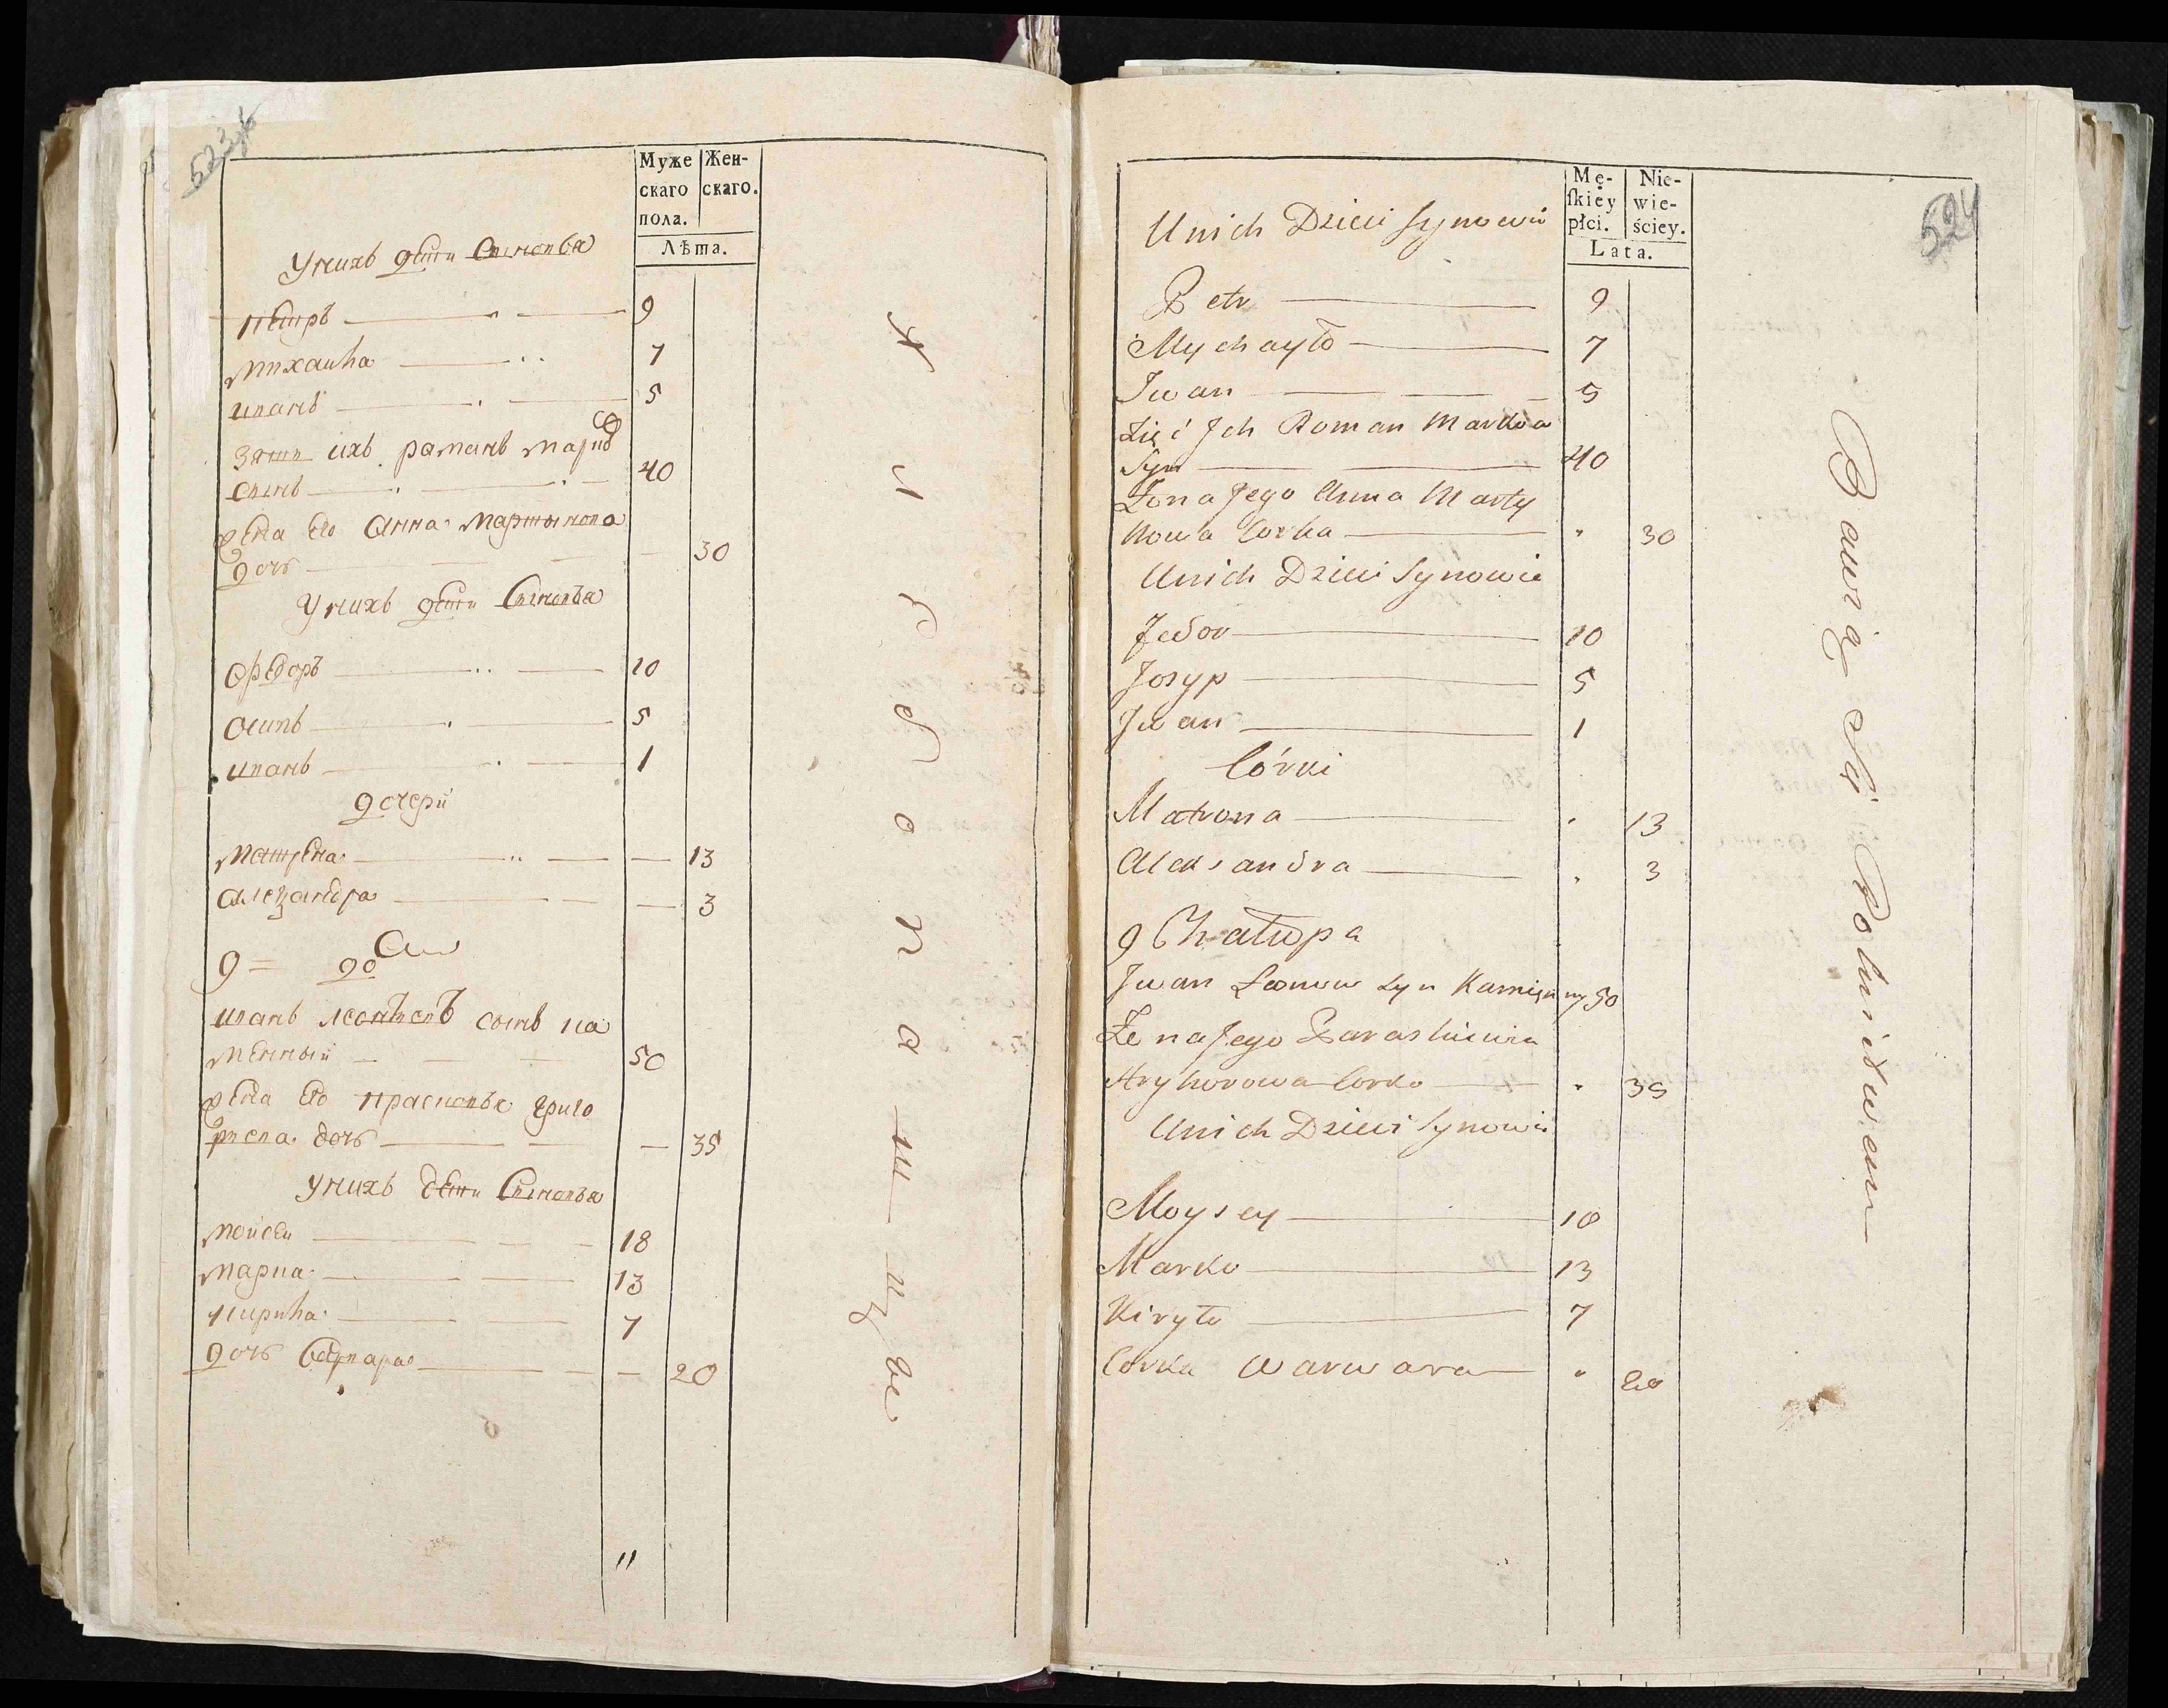 523об
Муже Жен-
скаго скаго.
пола.
Лѣта.
Унихъ дѣти Сыновья
Петръ 9
Михаила 7
Иванъ 5
Зять ихъ романъ марковъ
сынъ 40
жена его Анна Мартынова
дочь 30
Унихъ дѣти Сыновья
Федоръ 10
Осипъ 5
Иванъ 1
дочери
Матрена 13
Александра 3
9 = дом
Иванъ Леонтьевъ сынъ ка
менный 50
жена его Прасковья григо
рьева дочь 35
Унихъ дѣти Сыновья
Мойсей 18
Марка 13
Кирила 7
дочь Варвара 20
11
524
Mę- Nie-
ſkiey wie-
płci. ściey.
Lata.
Unich Dzieci Synowie
Petr 9
Mychayło 7
Jwan 5
Zięć Jch Roman Markow
Syn 40
Żona Jego Anna Marty
nowa Corka 30
Unich Dzieci Synowie
Fedor 10
Josyp 5
Jwan 1
Córki
Matrona 13
Aleksandra 3
9 Chałupa
Jwan Syn Kamięnny 50
Żena Jego Paraskiewia
Hryhorowa Corka 35
Unich Dzieci Synowie
Moysey 18
Marko 13
Kiryło 7
Corka Warwara 20
Bawią Się Rolnictwem